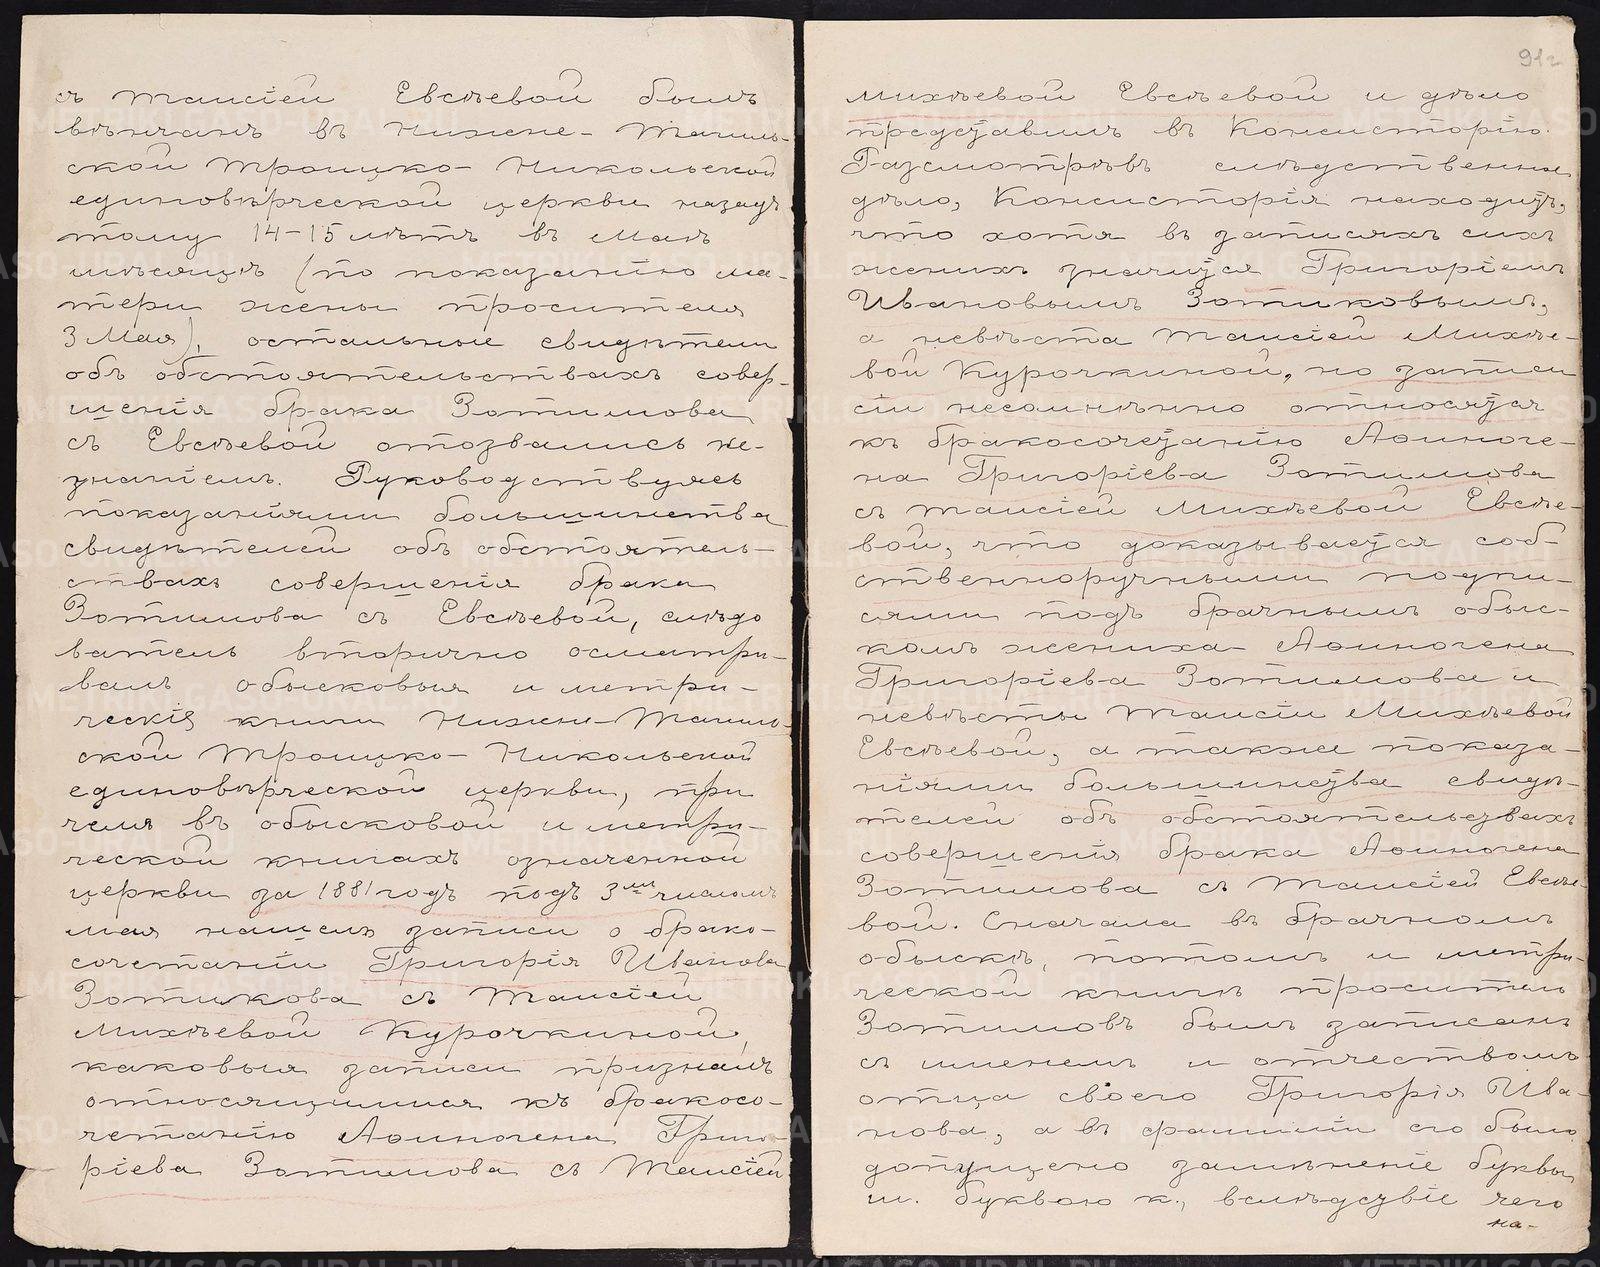 съ Таисіей Евсѣевой былъ
вѣнчанъ въ Нижне-Тагиль-
ской Троицко-Никольской
единовѣрческой церкви назадъ
тому 14-15 лѣтъ въ Маѣ
мѣсяцѣ (по показанію ма-
тери жены просителя
3 Мая), остальные свидѣтели
объ обстоятельствахъ совер-
шенія брака Зотимова
съ Евсѣевой отозвались не-
знаніемъ. Руководствуясь
показаніями большинства
свидѣтелей объ обстоятель-
ствахъ совершенія брака
Зотимова съ Евсѣевой, слѣдо
ватель вторично осматри-
валъ обысковыя и метри-
ческія книги Нижне-Тагиль-
ской Троицко-Никольской
единовѣрческой церкви, при
чемъ въ обысковой и метри-
ческой книгахъ означенной
церкви за 1881 годъ подъ 3мъ числомъ
мая нашелъ записи о брако-
сочетаніи Григорія Иванова
Зотикова съ Таисіей
Михѣевой Курочкиной,
каковыя записи призналъ
относящимися къ бракосо-
четанію Аѳиногена Григо-
ріева Зотимова съ Таисіей
91г
Михѣевой Евсѣевой и дѣло
представилъ въ Консисторію.
Разсмотрѣвъ слѣдственное
дѣло, Консисторія находитъ,
что хотя въ записяхъ сихъ
женихъ значится Григоріемъ
Ивановымъ Зотиковымъ,
а невѣста Таисіей Михѣе-
вой Курочкиной, но записи
сіи несомнѣнно относятся
къ бракосочетанію Аѳиноге-
на Григоріева Зотимова
съ Таисіей Михѣевой Евсѣе-
вой, что доказывается соб-
ственноручными подпи-
сями подъ брачнымъ обыс-
комъ жениха Аѳиногена
Григоріева Зотимова и
невѣсты Таисіи Михѣевой
Евсѣевой, а также показа-
ніями большинства свидѣ-
телей объ обстоятельствахъ
совершенія брака Аѳиногена
Зотимова съ Таисіей Евсѣе-
вой. Сначала въ брачномъ
обыскѣ, потомъ и метри-
ческой книгѣ проситель
Зотимовъ былъ записанъ
съ именемъ и отчествомъ
отца своего Григорія Ива-
нова, а въ фамиліи его было
допущено замѣненіе буквы
м. буквою к., вслѣдствіе чего
на-
METRIKI.GASO-URAL.RU